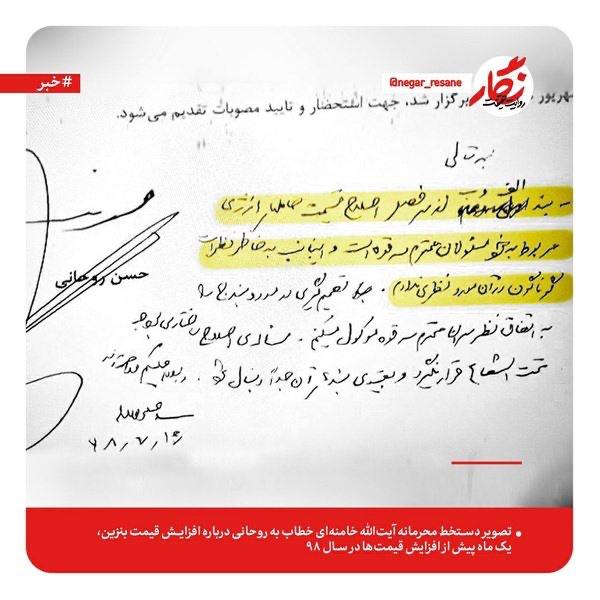 #خبر
@negar_resane
نگار
روایت حکمت
شهریور برگزار شد، جهت استحضار و تایید مصوبات تقدیم می‌شود.
بسمه تعالی
- بند الف از سرفصل اصلاح قیمت حاملهای انرژی
مربوط به خود مسئولان محترم سه قوه است و اینجانب به خاطر نظرات
گوناگون در آن مورد نظری ندارم. تصمیم‌گیری در مورد بند ج را
به اتفاق نظر سران محترم سه قوه موکول میکنم. اصلاح ساختاری بودجه
تحت الشعاع قرار نگیرد و بقیه‌ی بندهای آن جداً دنبال شود.
والسلام علیکم و رحمة‌الله
سیدعلی خامنه‌ای
۹۸/۷/۱۶
حسن روحانی
• تصویر دستخط محرمانه آیت‌الله خامنه‌ای خطاب به روحانی درباره افزایش قیمت بنزین،
یک ماه پیش از افزایش قیمت‌ها در سال ۹۸